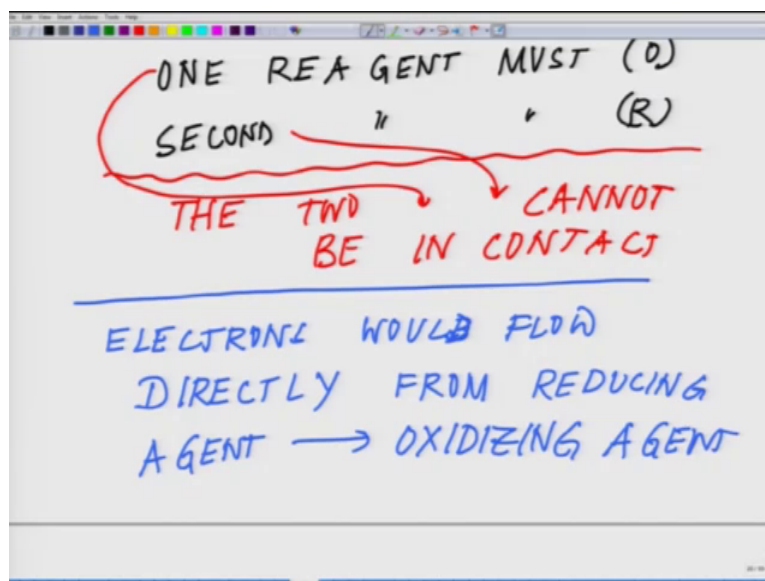 ONE REAGENT MUST (O)
SECOND " " (R)
THE TWO CANNOT
BE IN CONTACT
ELECTRONS WOULD FLOW
DIRECTLY FROM REDUCING
AGENT → OXIDIZING AGENT